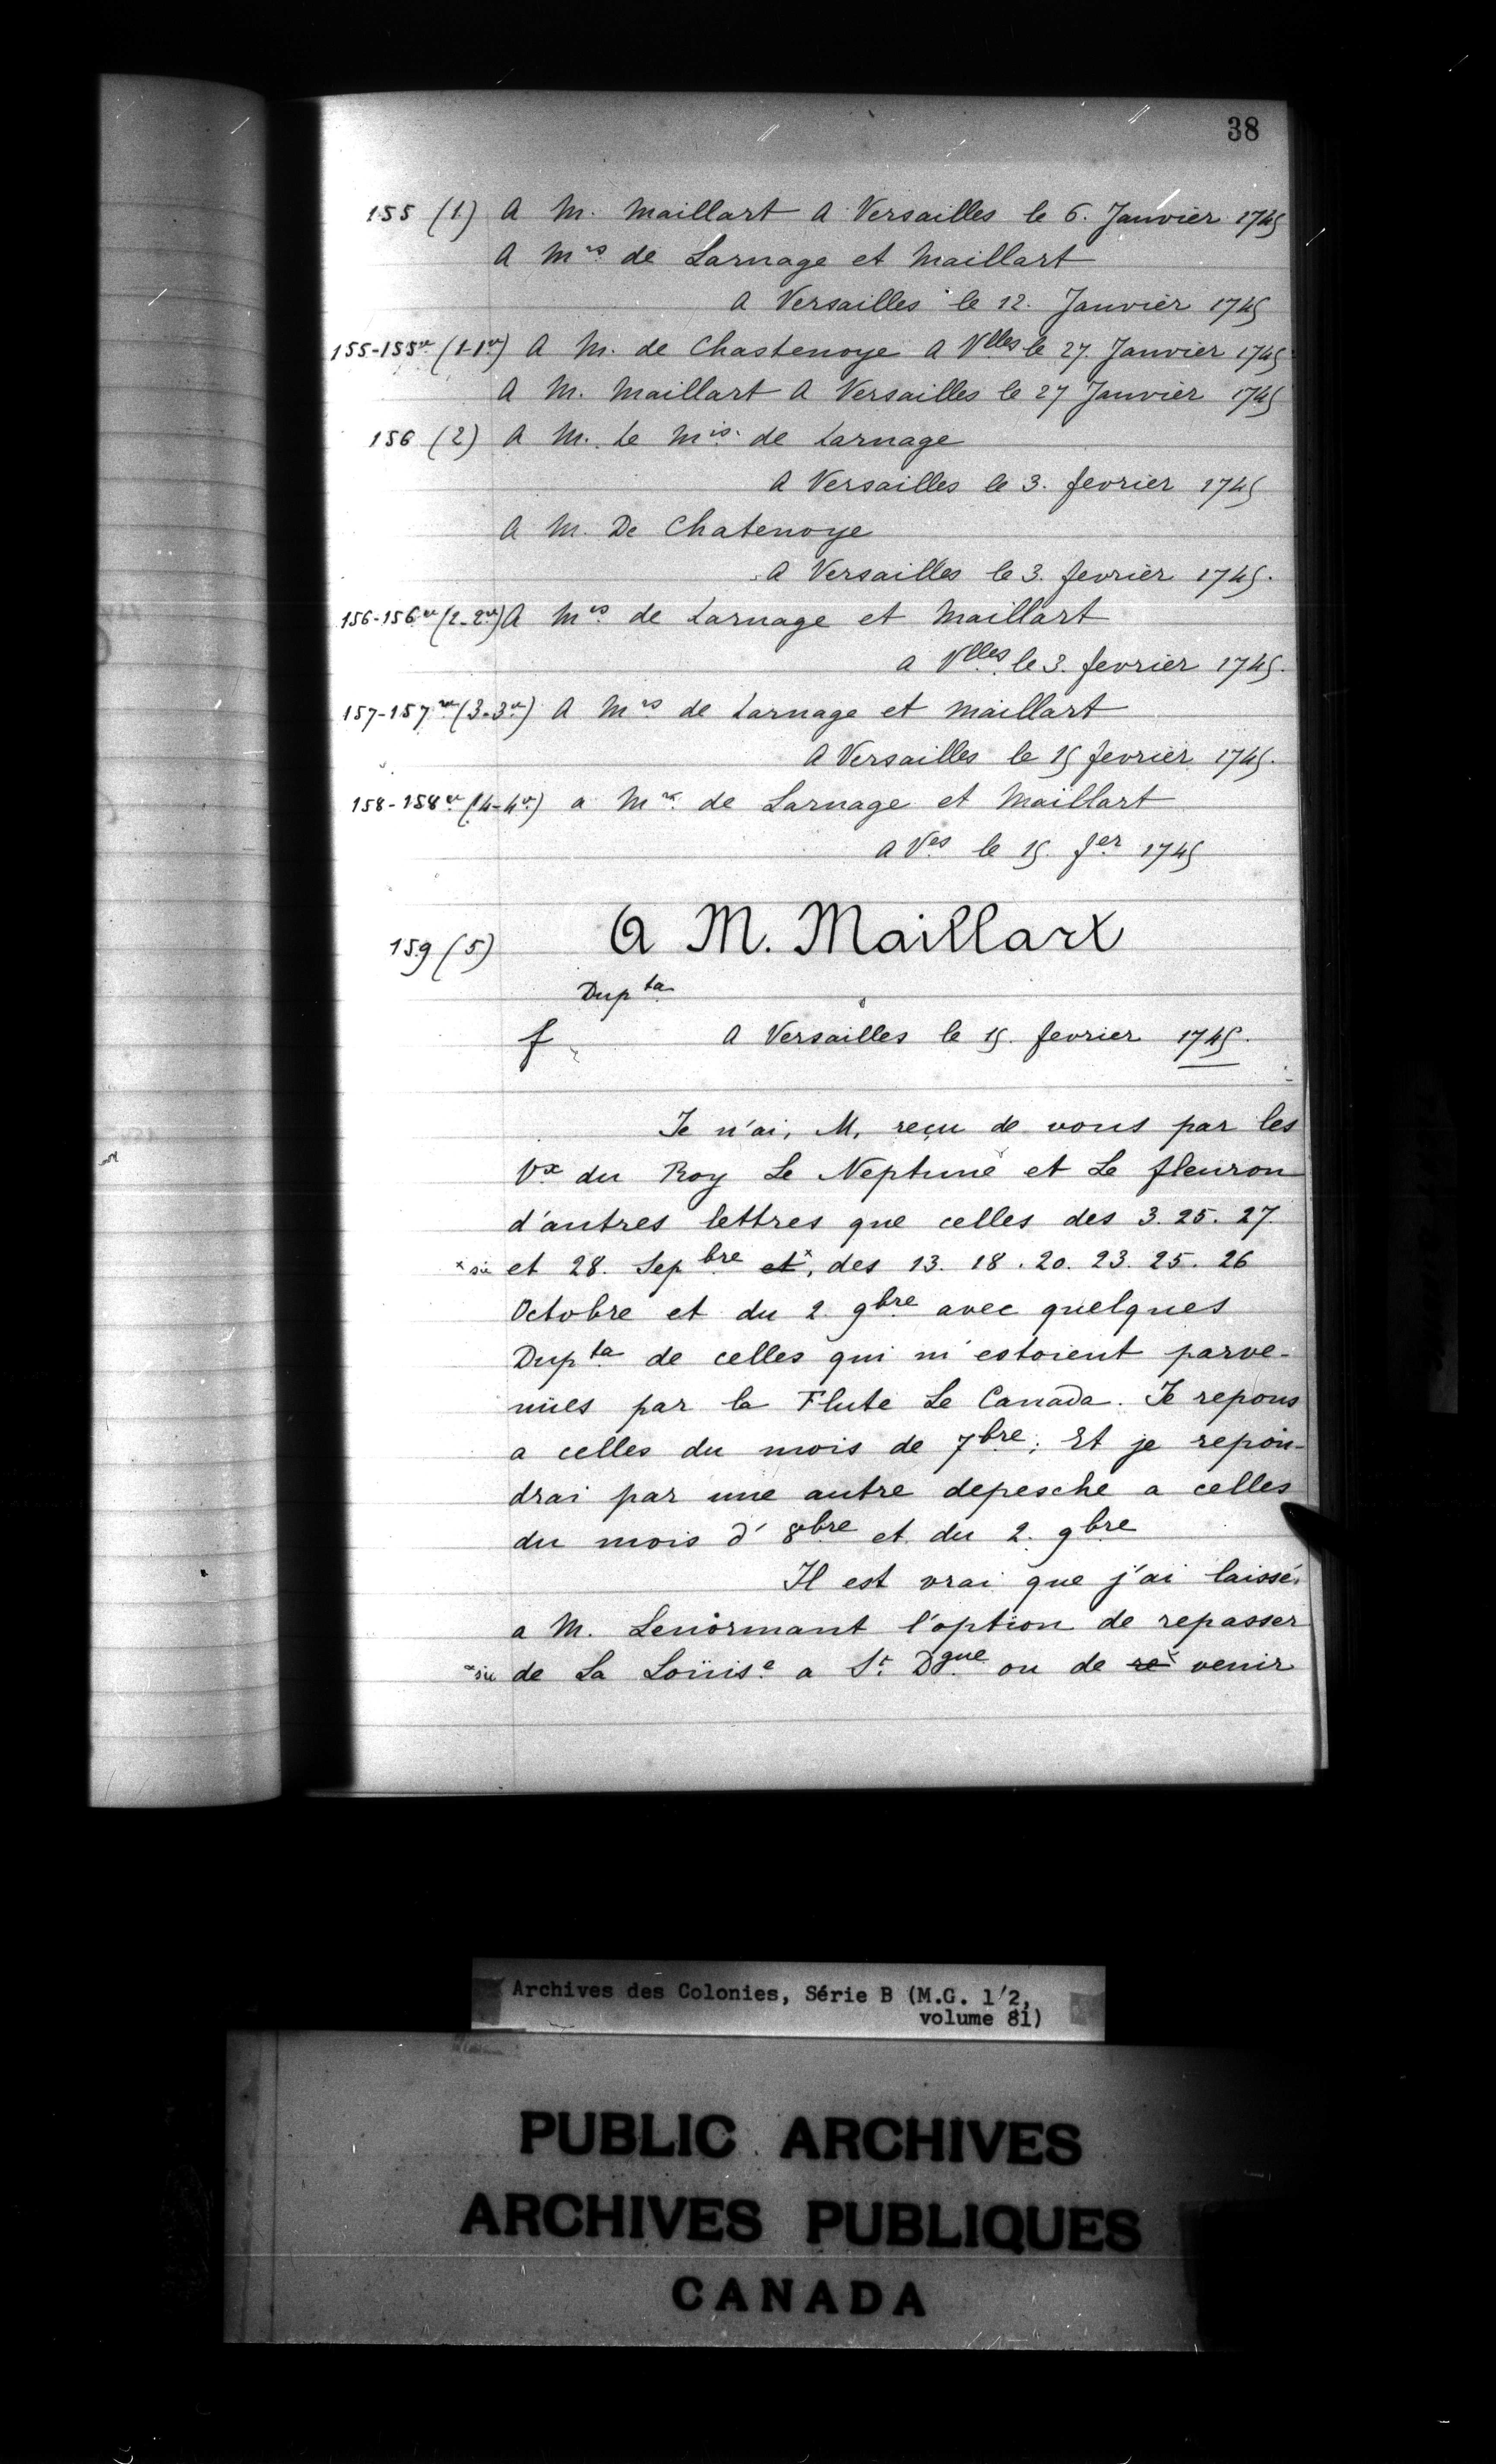 38
155 (1) A M. Maillart A Versailles le 6. Janvier 1745
A Mrs de Larnage et Maillart
A Versailles le 12. Janvier 1745
155-155vo (1-1vo) A M. de Chastenoye A Vlles le 27. Janvier 1745
A M. Maillart A Versailles le 27 Janvier 1745
156 (2) A M. Le Mis. de Larnage
A Versailles le 3. fevrier 1745
A M. De Chatenoye
A Versailles le 3. fevrier 1745.
156-156vo (2-2vo) A Mrs de Larnage et Maillart
a Vlles le 3. fevrier 1745.
157-157vo (3-3vo) A Mrs de Larnage et Maillart
A Versailles le 15 fevrier 1745.
158-158vo (4-4vo) a Mrs de Larnage et Maillart
A Ves le 15. fer 1745
159 (5) A M. Maillart
Dupta
f A Versailles le 15. fevrier 1745.
Je n'ai, M, reçu de vous par les
Vx du Roy Le Neptune et Le fleuron
d'autres lettres que celles des 3. 25. 27.
x sic et 28. Sepbre et x, des 13. 18. 20. 23. 25. 26
Octobre et du 2. 9bre avec quelques
Dupta de celles qui m'estoient parve-
nües par la Flute Le Canada. Je repons
a celles du mois de 7bre; Et je repon-
drai par une autre depesche a celles
du mois d' 8bre et du 2. 9bre
Il est vrai que j'ai laissé
a M. Lenormant l'option de repasser
x sic de La Loüise a St Dgue ou de re x venir
Archives des Colonies, Série B (M.G. 1/2,
volume 81)
PUBLIC ARCHIVES
ARCHIVES PUBLIQUES
CANADA